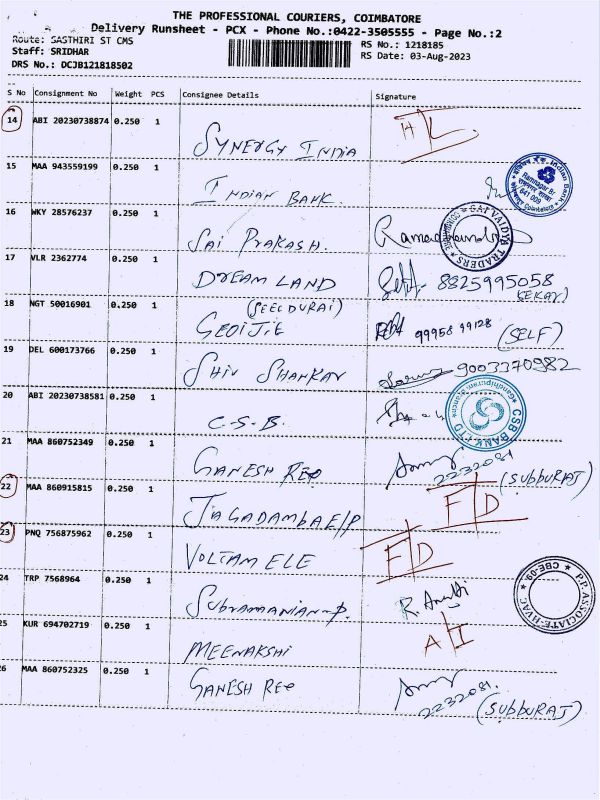 THE PROFESSIONAL COURIERS, COIMBATORE
Delivery Runsheet - PCX - Phone No.:0422-3505555 - Page No.:2
Route: SASTHIRI ST CMS
RS No.: 1218185
Staff: SRIDHAR
RS Date: 03-Aug-2023
DRS No.: DCJB121818502
S No Consignment No Weight PCS Consignee Details Signature
14 ABI 20230738874 0.250 1 SYNERGY INDIA
15 MAA 943559199 0.250 1 INDIAN BANK.
Indian Bank
641 009
Coimbatore
16 WKY 28576237 0.250 1 SAI PRAKASH.
SAI VAIDYA TRADERS COIMBATORE
17 VLR 2362774 0.250 1 DREAM LAND 8825995058
(SEKAR)
18 NGT 50016901 0.250 1 (SEEDURAI) 99958 99128 (SELF)
19 DEL 600173766 0.250 1 SHIV SHANKAR 9003370982
20 ABI 20230738581 0.250 1 C.S.B.
CSB BANK LTD Gandhipuram Branch
21 MAA 860752349 0.250 1 GANESH REP 2232081 (SUBBURAJ)
22 MAA 860915815 0.250 1 JAGADAMBA E/P F/D
23 PNQ 756875962 0.250 1 VOLTAM ELE F/D
24 TRP 7568964 0.250 1 SUBRAMANIAN P.
P.P. ASSOCIATE-HVAC CBE-09
25 KUR 694702719 0.250 1 MEENAKSHI
26 MAA 860752325 0.250 1 GANESH REP 2232081. (SUBBURAJ)